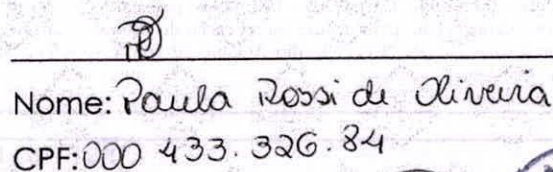 Nome: Paula Rossi de Oliveira
CPF:000 433.326.84